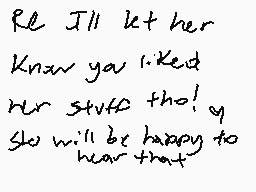 RE I'll let her
know you liked
her stuff tho! ♥
she will be happy to
hear that